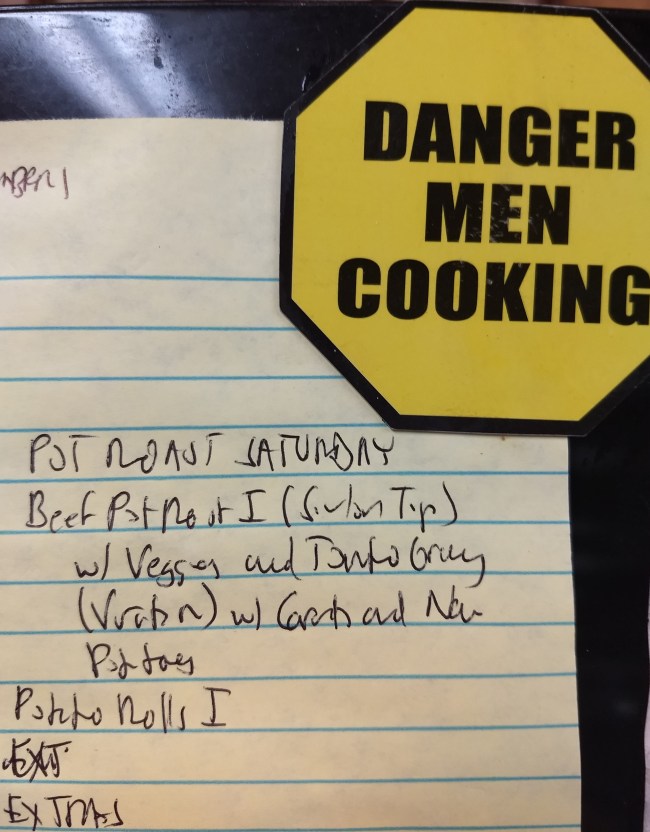 DANGER
MEN
COOKING
POT ROAST SATURDAY
Beef Pot Roast I (Sirloin Tip)
w/ Veggies and Tomato Gravy
(Variation) w/ Carrots and New
Potatoes
Potato Rolls I
EXT
EXTRAS